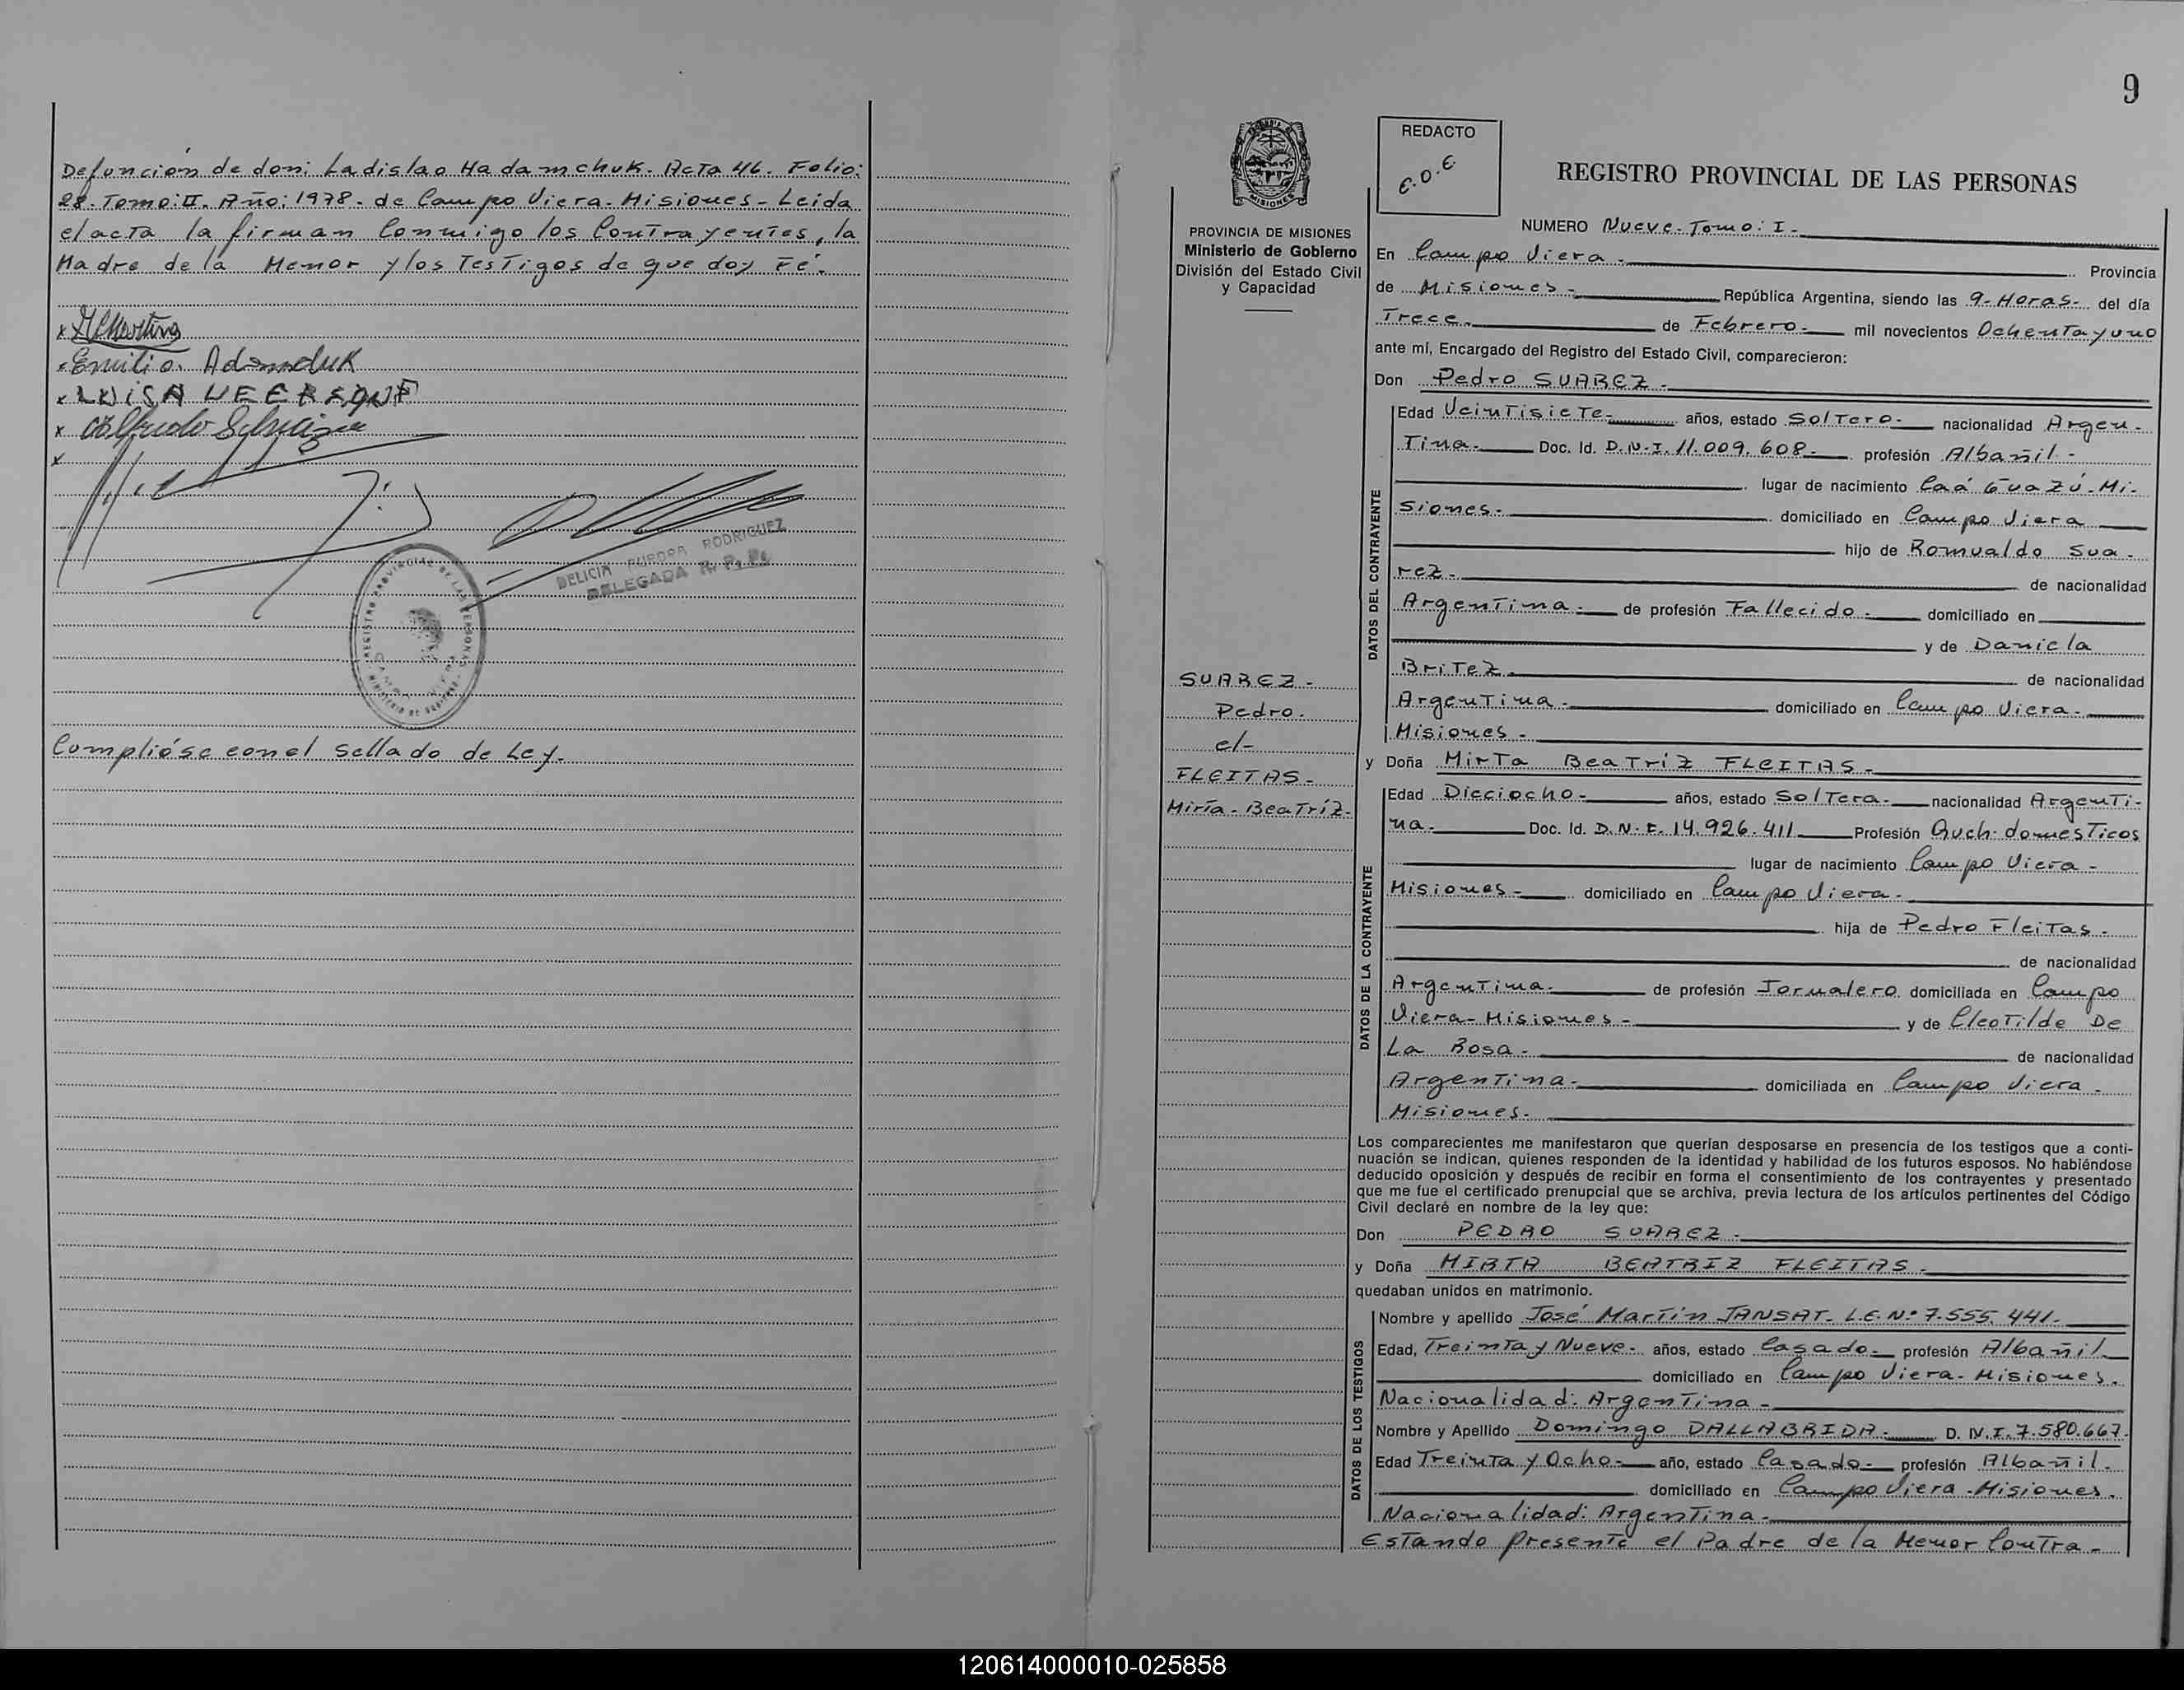 Defuncion de don: Ladislao Hadamchuk. Acta 46. Folio:
28. Tomo: II. Año: 1978. de Campo Viera. Misiones - Leida
el acta la firman Conmigo los Contrayentes, la
Madre de la Menor y los Testigos de que doy Fé.
Emilio Adamchuk
LUISA
Alfredo
DELICIA AURORA RODRIGUEZ
DELEGADA R. P. Ps.
REGISTRO PROVINCIAL DE LAS PERSONAS
MINISTERIO DE GOBIERNO
Complióse con el sellado de Ley.
9
MISIONES
PROVINCIA DE MISIONES
Ministerio de Gobierno
División del Estado Civil
y Capacidad
SUAREZ -
Pedro.
c/-
FLEITAS -
Mirta - Beatríz -
REDACTO
C.O.C.
REGISTRO PROVINCIAL DE LAS PERSONAS
NUMERO Nueve - Tomo: I -
En Campo Viera - Provincia
de Misiones - República Argentina, siendo las 9 - Horas - del día
Trece - de Febrero - mil novecientos Ochenta y uno
ante mí, Encargado del Registro del Estado Civil, comparecieron:
Don Pedro SUAREZ -
DATOS DEL CONTRAYENTE
Edad Veintisiete - años, estado Soltero - nacionalidad Argen -
Tina - Doc. Id. D.N.I. 11.009.608 - profesión Albañil -
lugar de nacimiento Caá Guazú - Mi -
siones - domiciliado en Campo Viera
hijo de Romualdo Sua -
rez - de nacionalidad
Argentina - de profesión Fallecido - domiciliado en
y de Daniela
Britez - de nacionalidad
Argentina - domiciliado en Campo Viera -
Misiones -
y Doña Mirta Beatríz FLEITAS -
DATOS DE LA CONTRAYENTE
Edad Dieciocho - años, estado Soltera - nacionalidad Argenti -
na - Doc. Id. D.N.I. 14.926.411 Profesión Queh. domesticos
lugar de nacimiento Campo Viera -
Misiones - domiciliado en Campo Viera -
hija de Pedro Fleitas -
de nacionalidad
Argentina - de profesión Jornalero domiciliada en Campo
Viera - Misiones - y de Cleotilde De
La Rosa - de nacionalidad
Argentina - domiciliada en Campo Viera -
Misiones -
Los comparecientes me manifestaron que querían desposarse en presencia de los testigos que a conti-
nuación se indican, quienes responden de la identidad y habilidad de los futuros esposos. No habiéndose
deducido oposición y después de recibir en forma el consentimiento de los contrayentes y presentado
que me fue el certificado prenupcial que se archiva, previa lectura de los artículos pertinentes del Código
Civil declaré en nombre de la ley que:
Don PEDRO SUAREZ -
y Doña MIRTA BEATRIZ FLEITAS -
quedaban unidos en matrimonio.
DATOS DE LOS TESTIGOS
Nombre y apellido José Martín JANSAT - L.E. Nº 7.555.441 -
Edad, Treinta y Nueve - años, estado Casado - profesión Albañil
domiciliado en Campo Viera - Misiones -
Nacionalidad: Argentina -
Nombre y Apellido Domingo DALLABRIDA - D.N.I. 7.580.667 -
Edad Treinta y Ocho - año, estado Casado - profesión Albañil -
domiciliado en Campo Viera - Misiones -
Nacionalidad: Argentina -
Estando presente el Padre de la Menor Contra -
120614000010-025858